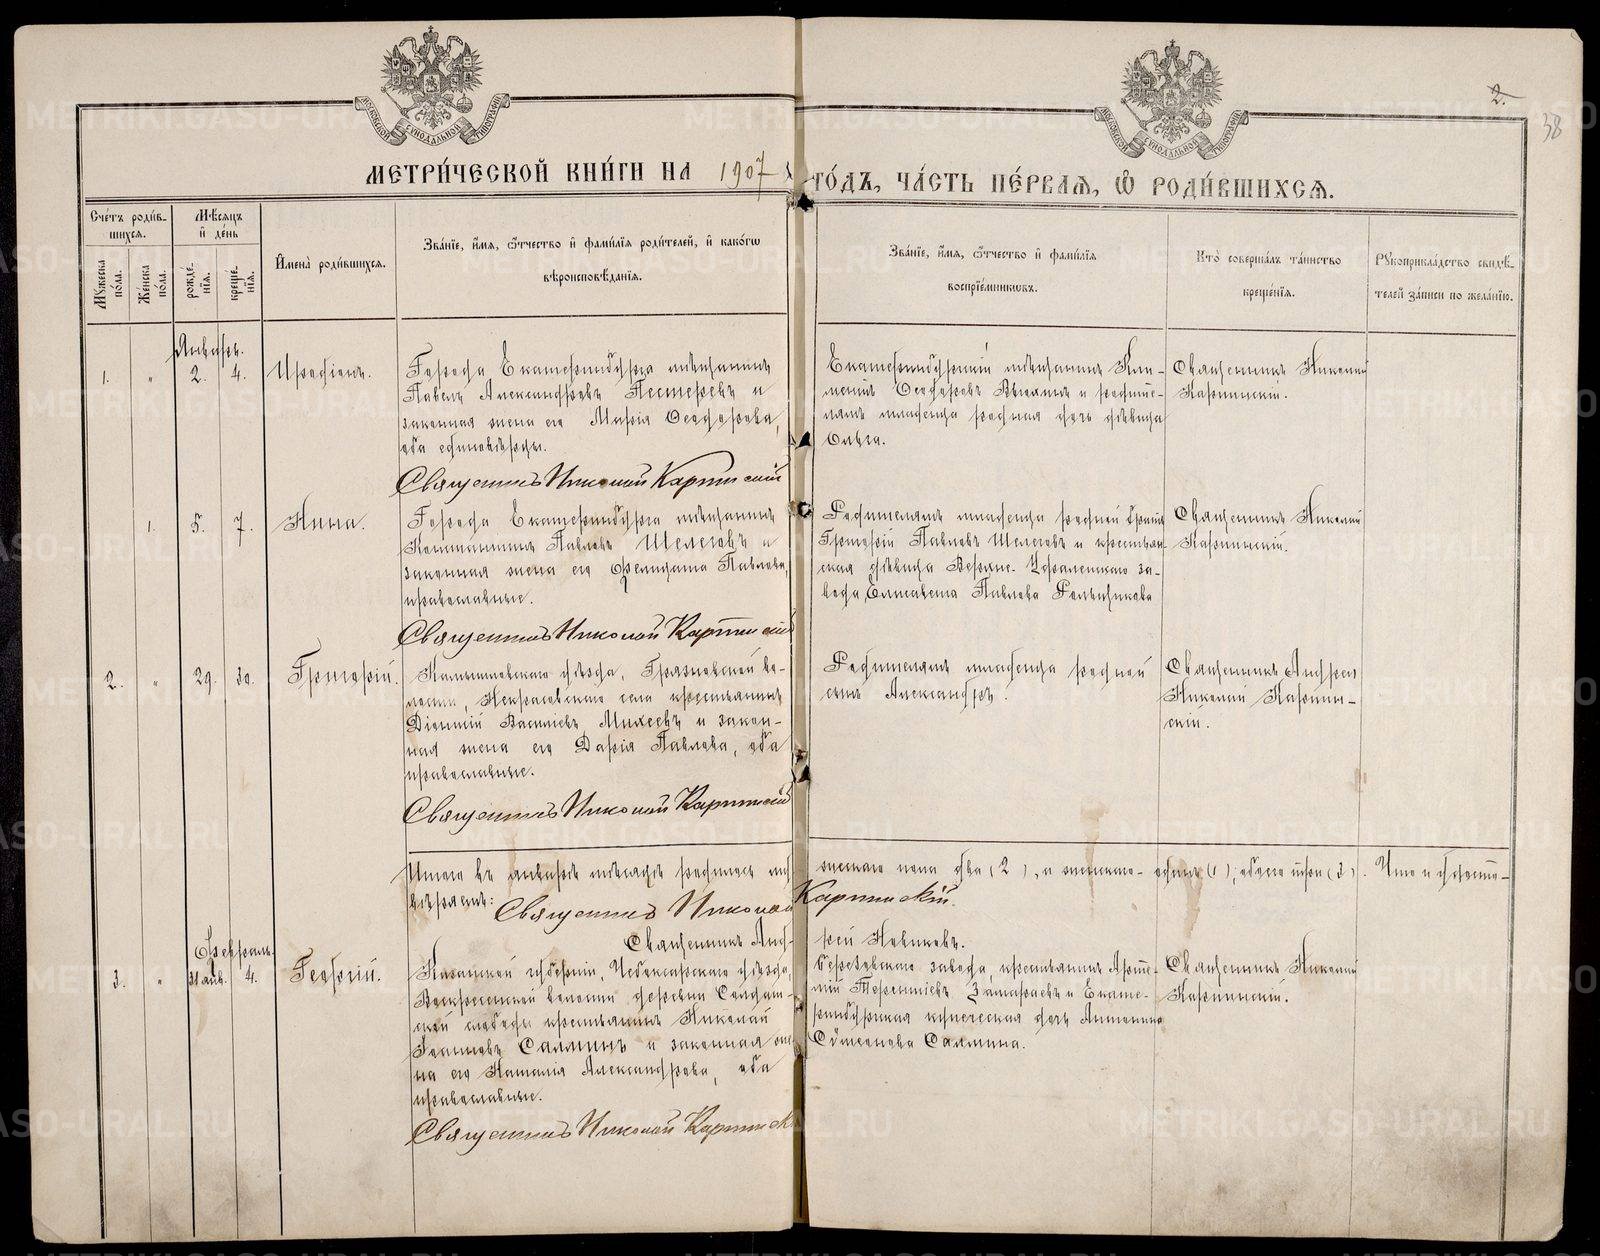 МЕТРИ́ЧЕСКОЙ КНИ́ГИ НА 1907
ГО́ДЪ, ЧА́СТЬ ПЕ́РВАѦ, Ѡ҆ РОДИ́ВШИХСѦ.
2.
38
Сче́тъ роди́в-
шихсѧ.
Мꙋжеска по́ла.
Же́нска по́ла.
Мѣ́сѧцъ
и҆ де́нь
рожде́-
нїѧ.
креще́-
нїѧ.
И҆мена̀ роди́вшихсѧ.
Зва́нїе, и҆́мѧ, ѻ҆́тчество и҆ фами́лїѧ роди́телей, и҆ како́гѡ
вѣроисповѣ́данїѧ.
Зва́нїе, и҆́мѧ, ѻ҆́тчество и҆ фами́лїѧ
воспрїе́мникѡвъ.
Кто̀ соверша́лъ та́инство
креще́нїѧ.
Рꙋкоприкла́дство свидѣ́-
телей за́писи по жела́нїю.
Январь.
1. " 2. 4.
Города Екатеринбурга мѣщанинъ
Павелъ Александровъ Пестеревъ и
законная жена его Марія Ѳеодорова,
оба единовѣрцы.
Священникъ Николай Карпинскій
Екатеринбургскій мѣщанинъ
Ѳеодоровъ и родите-
лямъ младенца родная дочь дѣвица
Ольга.
Священникъ Николай
Карпинскій.
1. 5. 7. Нина.
Города Екатеринбурга мѣщанинъ
Константинъ Павловъ Шелеговъ и
законная жена его Фелицата Павлова,
православные.
Священникъ Николай Карпинскій
Родителямъ младенца родной
Григорій Павловъ Шелеговъ и крестьян-
ская дѣвица Верхне-Уфалейскаго за-
вода, Елисавета Павлова
Священникъ Николай
Карпинскій.
2. " 29. 30. Григорій.
Камышловскаго уѣзда, Грязновской во-
лости, Некрасовскаго села крестьянинъ
Діонисій Василіевъ Михеевъ и закон-
ная жена его Дарія Павлова, оба
православные.
Священникъ Николай Карпинскій
Родителямъ младенца родной
сынъ Александръ.
Священникъ Андрей
Николай Карпин-
скій.
Итого въ январѣ мѣсяцѣ родилось муж-
жескаго пола два (2), а женскаго - одинъ (1), обоего три (3). Что и удосто-
вѣряемъ: Священникъ Николай Карпинскій.
Священникъ Анд-
рей Новиковъ.
Февраль.
3. " 31 янв. 4. Георгій.
Казанской губерніи, Чебоксарскаго уѣзда,
Воскресенской волости деревни Солдат-
ской слободы крестьянинъ Николай
Іоанновъ Салминъ и законная же-
на его Наталія Александрова, оба
православные.
Священникъ Николай Карпинскій
Березовскаго завода, крестьянинъ
Терентіевъ и Екате-
ринбургская купеческая дочь Антонина
Салмина.
Священникъ Николай
Карпинскій.
METRIKI.GASO-URAL.RU